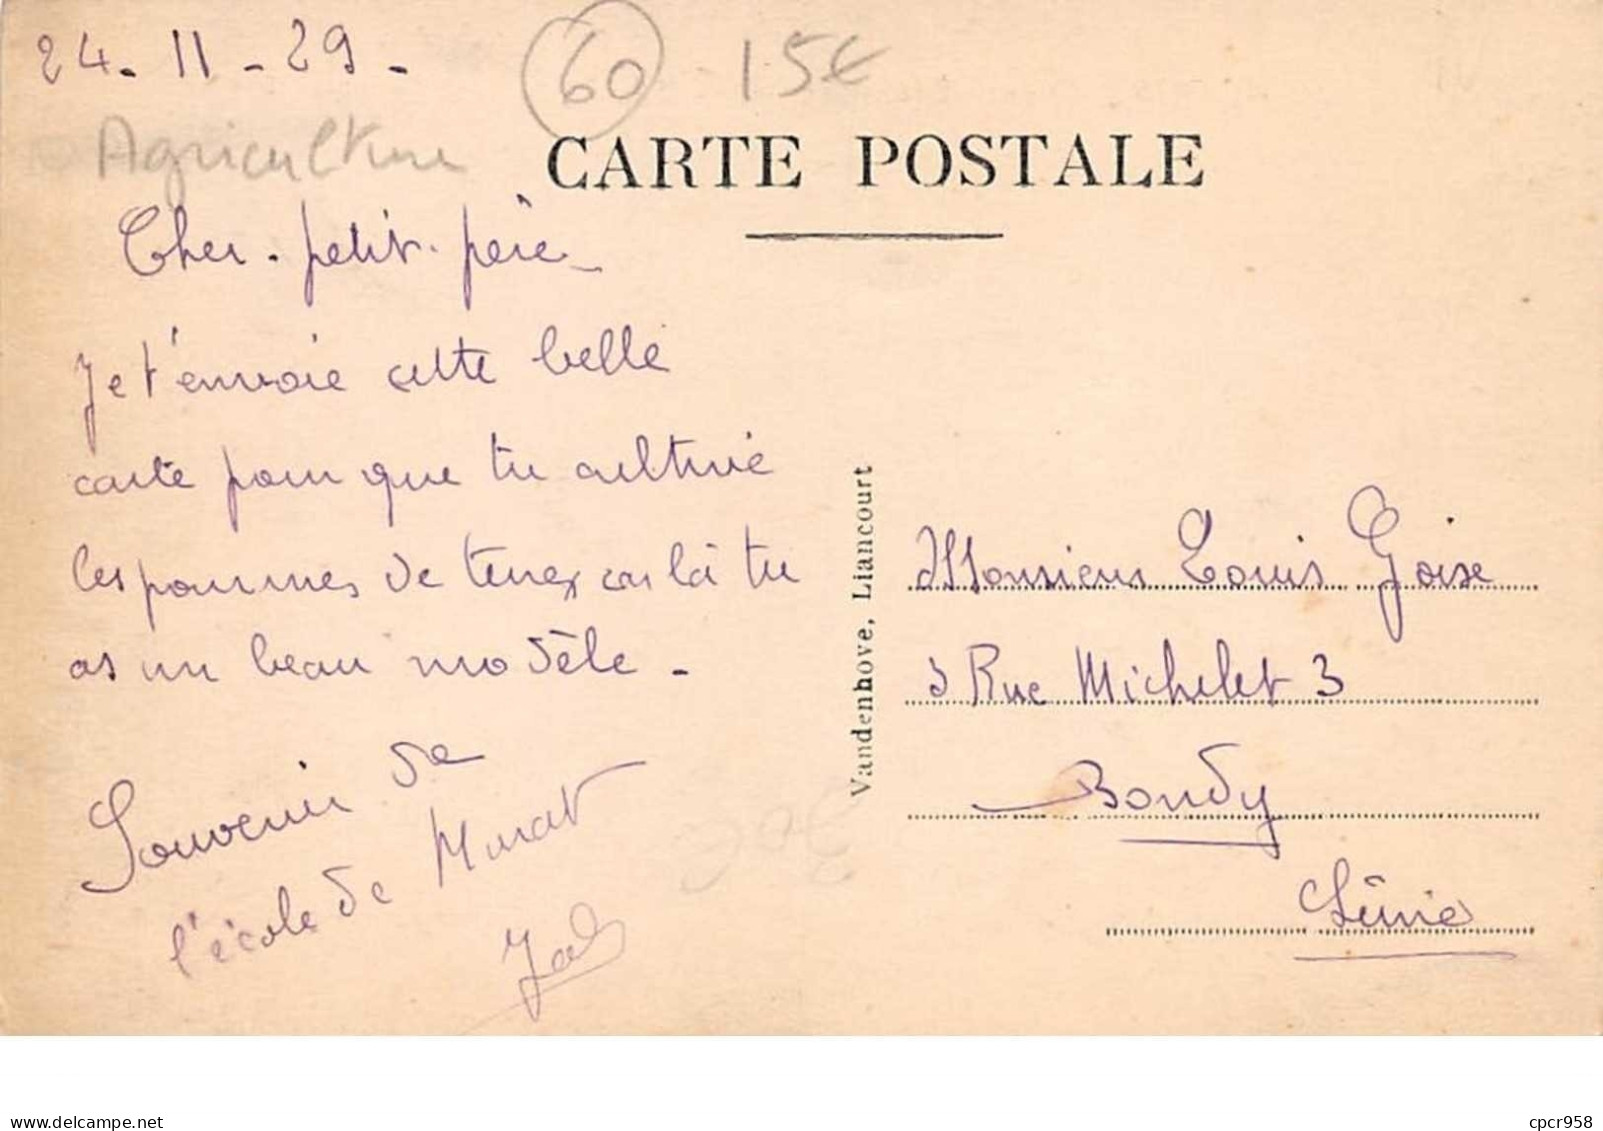 24-11-29-
60
15€
Agriculture
CARTE POSTALE
Cher petit père
Je t'envoie cette belle
carte pour que tu cultive
les pommes de terres car là tu
as un beau modèle.
Souvenir de
l'école de Murat
Vandenhove, Liancourt
Monsieur Louis
3 Rue Michelet 3
Bondy
Seine
30€
delcampe.net
cpcr958